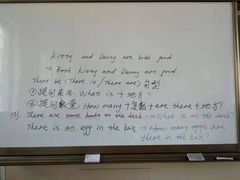 Kitty and Danny are both good
→ Both Kitty and Danny are good.
There be (There is / There are) 句型
①提问东西: What is + 地方?
②提问数量: How many + 复数 + are there + 地方?
例 There are some books on the desk → What is on the desk?
There is an egg in the box → How many eggs are there in the box?